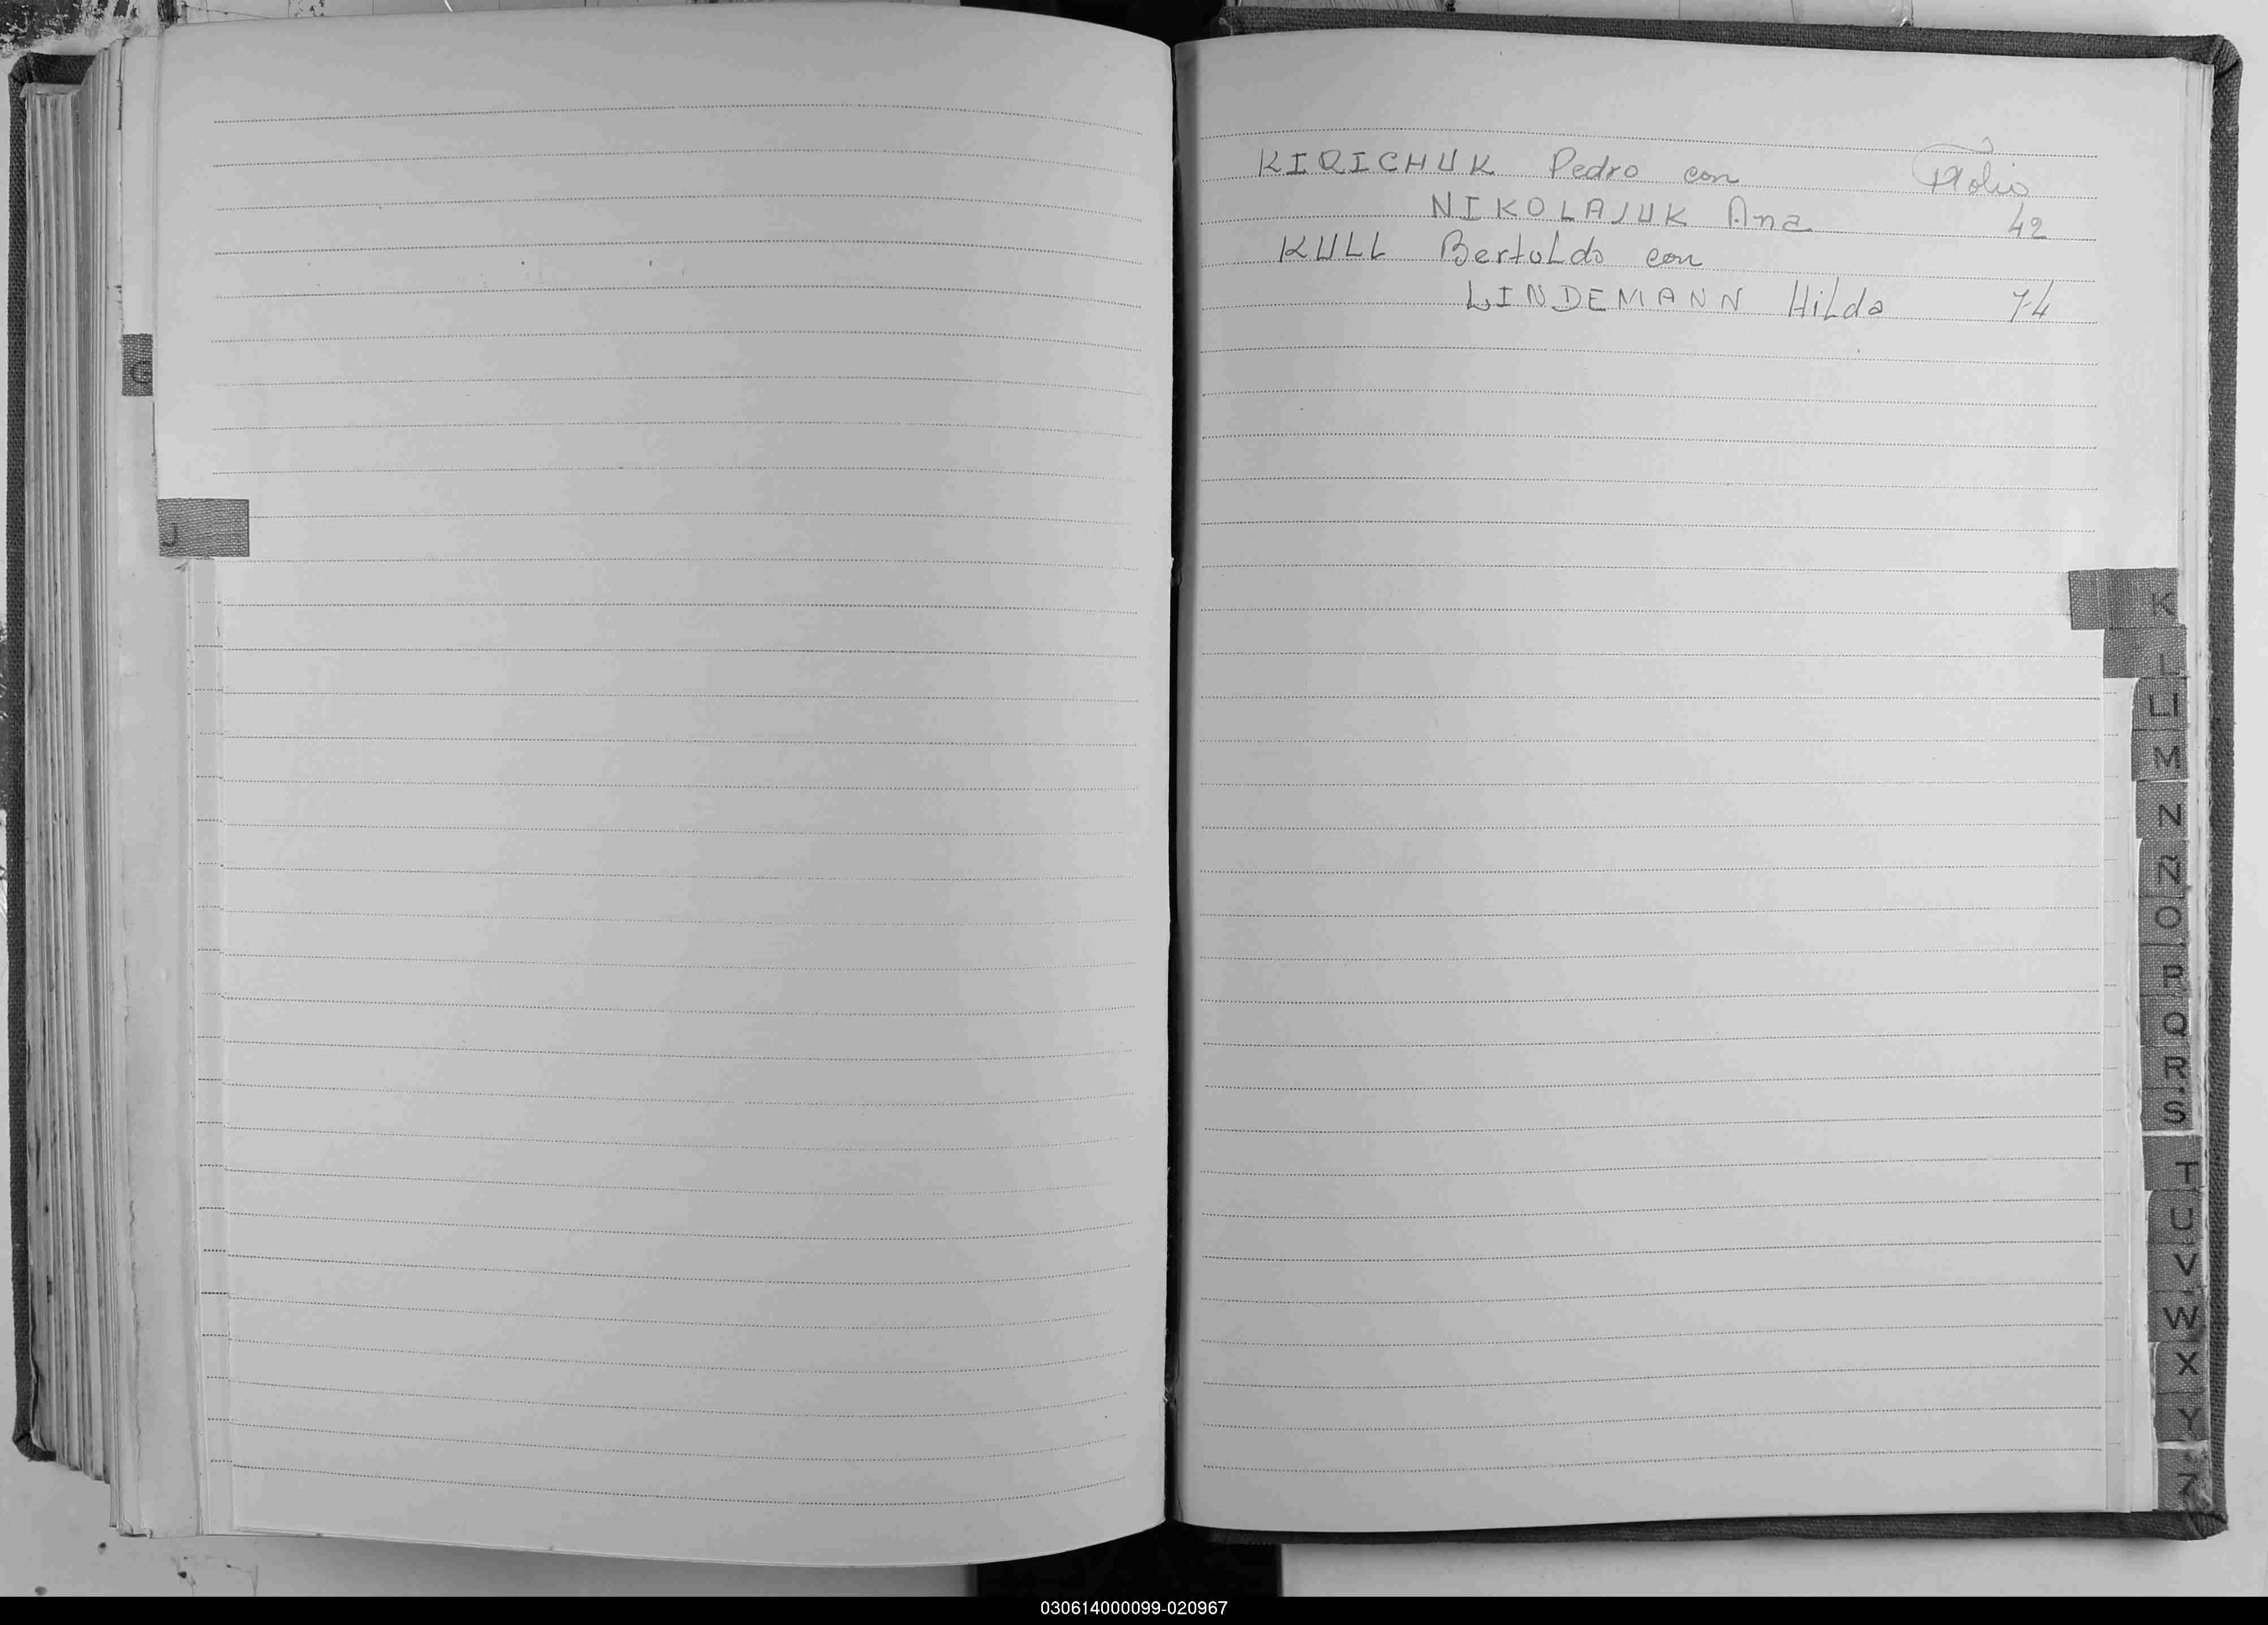 KIRICHUK Pedro con Folio
NIKOLAJUK Ana 42
KULL Bertoldo con
LINDEMANN Hilda 74
G
J
K
L
LL
M
N
Ñ
O
P
Q
R
S
T
U
V
W
X
Y
Z
030614000099-020967